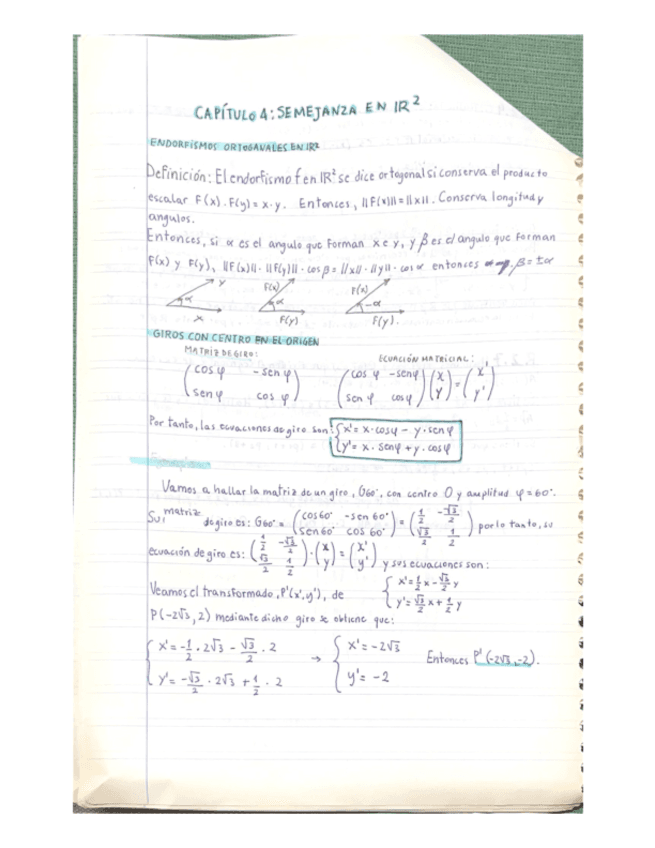 CAPÍTULO 4: SEMEJANZA EN IR²
ENDORFISMOS ORTOGANALES EN IR²
Definición: El endorfismo f en IR² se dice ortogonal si conserva el producto
escalar F(x). F(y) = x·y. Entonces, ||F(x)|| = ||x||. Conserva longitud y
angulos.
Entonces, si α es el angulo que forman x e y, y β es el angulo que forman
F(x) y F(y), ||F(x)|| · ||F(y)|| · cos β = ||x|| · ||y|| · cos α entonces β = ±α
y F(x) F(x)
α α -α
x F(y) F(y).
GIROS CON CENTRO EN EL ORIGEN
MATRIZ DE GIRO: ECUACIÓN MATRICIAL:
(cos φ - sen φ) (cos φ - sen φ) (x) = (x')
(sen φ cos φ) (sen φ cos φ) (y) (y')
Por tanto, las ecuaciones de giro son: { x' = x · cos φ - y · sen φ
y' = x · sen φ + y · cos φ
Vamos a hallar la matriz de un giro, G60°, con centro O y amplitud φ = 60°.
Su matriz de giro es: G60° = (cos60° -sen 60°) = (1/2 -√3/2) por lo tanto, su
(sen 60° cos 60°) (√3/2 1/2)
ecuación de giro es: (1/2 -√3/2) · (x) = (x') y sus ecuaciones son:
(√3/2 1/2) (y) (y')
{ x' = 1/2 x - √3/2 y
y' = √3/2 x + 1/2 y
Veamos el transformado, P'(x', y'), de
P(-2√3, 2) mediante dicho giro se obtiene que:
{ x' = -1/2 · 2√3 - √3/2 · 2 → { x' = -2√3 Entonces P'(-2√3, -2).
y' = -√3/2 · 2√3 + 1/2 · 2 y' = -2